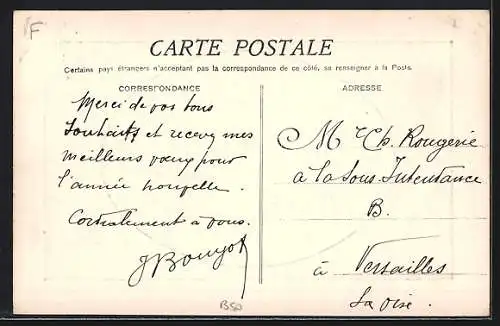 F
CARTE POSTALE
Certains pays étrangers n'acceptant pas la correspondance de ce côté, se renseigner à la Poste.
CORRESPONDANCE
Merci de vos bons
souhaits et recevez mes
meilleurs vœux pour
l'année nouvelle.
Cordialement à vous.
ADRESSE
Mr Ch. Rougerie
à la Sous Intendance
B.
à Versailles
S. et Oise.
B50